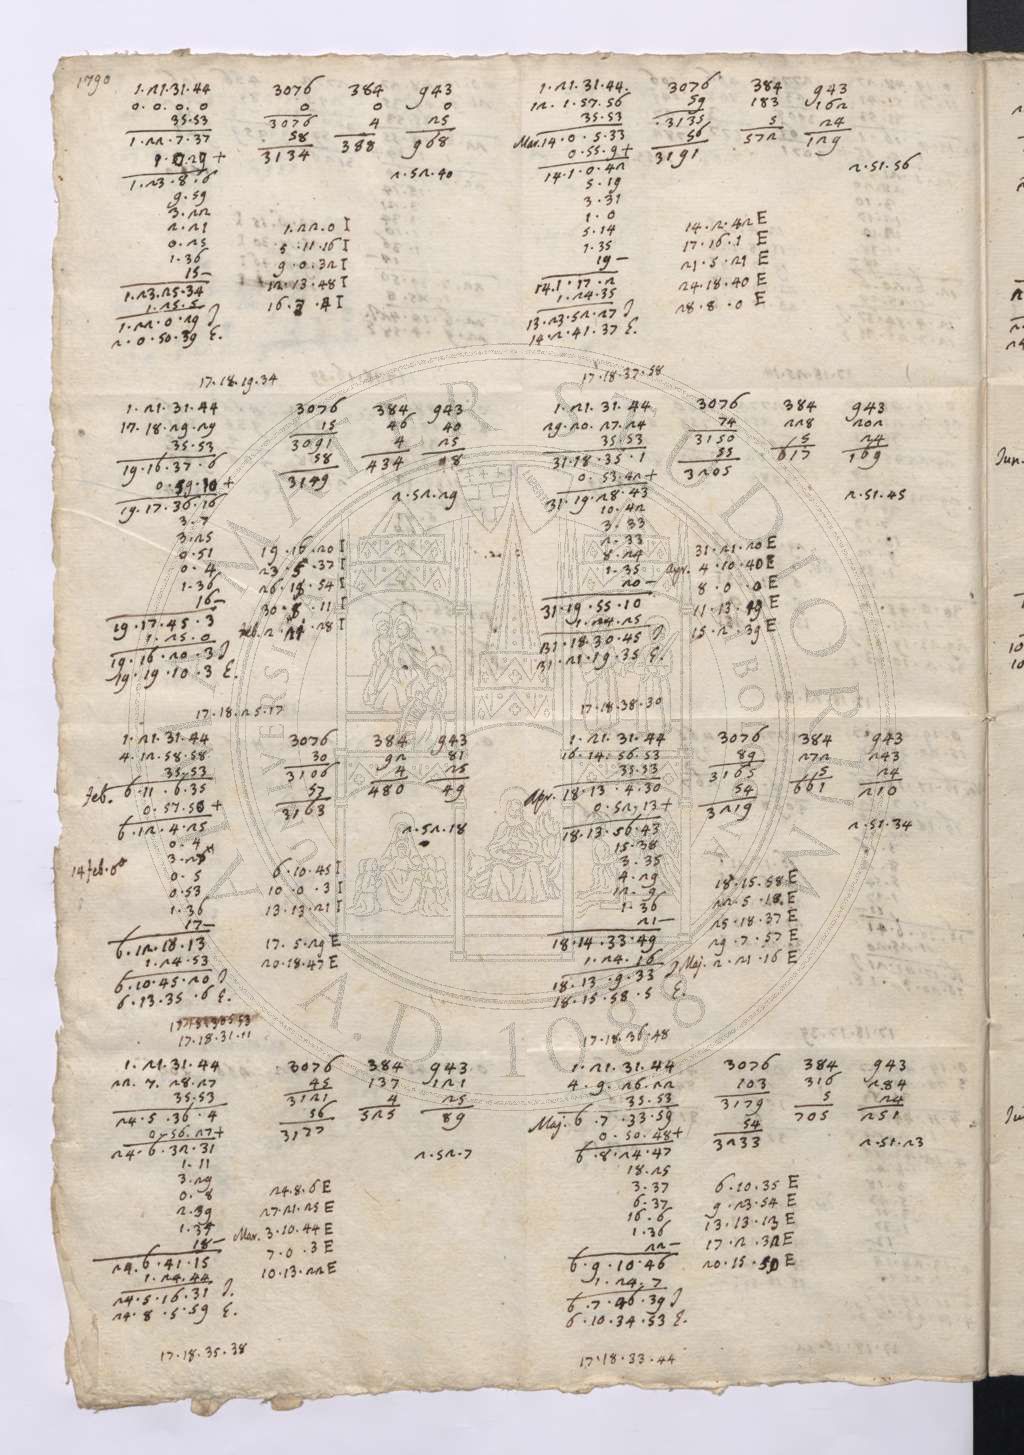 1790
1.21.31.44 3076 384 943
0.0.0.0 0 0 0
35.53 3076 4 25
1.22.7.37 58 388 968
1.0.29+ 3134
1.23.8.6 2.52.40
9.59
3.22
2.21 1.22.0 I
0.25 5.11.16 I
1.36 9.0.32 I
15– 12.13.48 I
1.23.25.34 16.3.4 I
1.25.5
1.22.0.29 J
2.0.50.39 E.
17.18.19.34
1.21.31.44 3076 384 943
17.18.29.29 15 46 40
35.53 3091 4 25
19.16.37.6 58 434 8
0.59.10+ 3149
19.17.36.16 2.52.29
3.7
3.25
0.51 19.16.20 I
0.4 23.5.37 I
1.36 26.18.54 I
16– 30.8.11 I
19.17.45.3 Feb.2.21.28 I
1.25.0
19.16.20.3 J
19.19.10.3 E.
17.18.25.17
1.21.31.44 3076 384 943
4.12.58.58 30 92 81
35.53 3106 4 25
Feb. 6.11.6.35 57 480 49
0.57.50+ 3163
6.12.4.25 2.52.18
0.4
14 Feb. 3.25
0.5 6.10.45 I
0.53 10.0.3 I
1.36 13.13.21 I
17–
6.12.18.13 17.5.29 E
1.24.53 20.18.47 E
6.10.45.20 J
6.13.35.6 E.
17.18.31.11
1.21.31.44 3076 384 943
22.7.28.27 45 137 121
35.53 3121 4 25
24.5.36.4 56 525 89
0.56.27+ 3177
24.6.32.31 2.52.7
1.11
3.29
0.8 24.8.6 E
2.39 27.21.25 E
1.37 Mar. 3.10.44 E
18– 7.0.3 E
24.6.41.15 10.13.22 E
1.24.44
24.5.16.31 J.
24.8.5.59 E.
17.18.35.38
1.21.31.44 3076 384 943
12.1.57.56 59 183 162
35.53 3135 5 24
Mar. 14.0.5.33 56 572 129
0.55.9+ 3191
14.1.0.42 2.51.56
5.19
3.31
1.0
5.14 14.2.42 E
1.35 17.16.1 E
19– 21.5.21 E
14.1.17.2 24.18.40 E
1.24.35 28.8.0 E
13.23.52.27 J
14.2.41.37 E.
17.18.37.58
1.21.31.44 3076 384 943
29.20.27.24 74 228 202
35.53 3150 5 24
31.18.35.1 55 617 169
0.53.42+ 3205
31.19.28.43 2.51.45
10.42
3.33
2.33
8.24 31.21.20 E
1.35 Apr. 4.10.40 E
20– 8.0.0 E
31.19.55.10 11.13.19 E
1.24.25 15.2.39 E
31.18.30.45 J
31.21.19.35 E.
17.18.38.30
1.21.31.44 3076 384 943
16.14.56.53 89 272 243
35.53 3165 5 24
Apr. 18.13.4.30 54 661 210
0.52.13+ 3219
18.13.56.43 2.51.34
15.38
3.35
4.29
12.9 18.15.58 E
1.36 22.5.18 E
21– 25.18.37 E
18.14.33.49 29.7.57 E
1.24.16 Maj. 2.21.16 E
18.13.9.33 J
18.15.58.5 E.
17.18.36.48
1.21.31.44 3076 384 943
4.9.26.22 103 316 284
35.53 3179 5 24
Maj. 6.7.33.59 54 705 251
0.50.48+ 3233
6.8.24.47 2.51.23
18.25
3.37 6.10.35 E
6.37 9.23.54 E
16.6 13.13.13 E
1.36 17.2.32 E
22– 20.15.50 E
6.9.10.46
1.24.7
6.7.46.39 J
6.10.34.53 E.
17.18.33.44